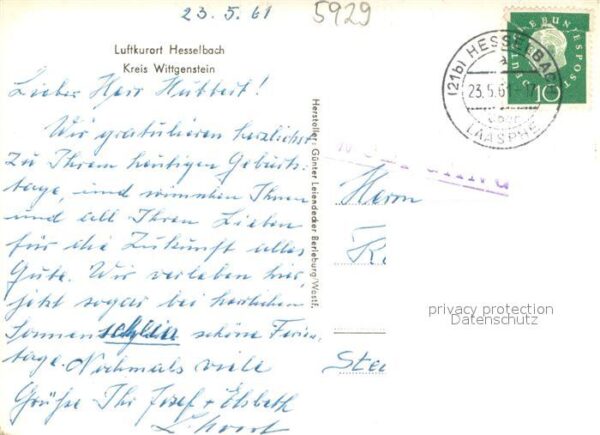 23.5.61
5929
Luftkurort Hesselbach
Kreis Wittgenstein
Lieber Herr Huttest!
Wir gratulieren herzlichst
zu Ihrem heutigen Geburts-
tage, und wünschen Ihnen
und all Ihren Lieben
für die Zukunft alles
Gute. Wir verleben hier,
jetzt sogar bei herrlichem
Sonnenschein schöne Ferien-
tage. Nochmals viele
Grüße Ihr Josef + Elsbeth
Hersteller: Günter Leiendecker Berleburg/Westf.
DEUTSCHE BUNDESPOST
10
(21b) HESSELBACH
23.5.61-17
über
LAASPHE
Herrn
privacy protection
Datenschutz